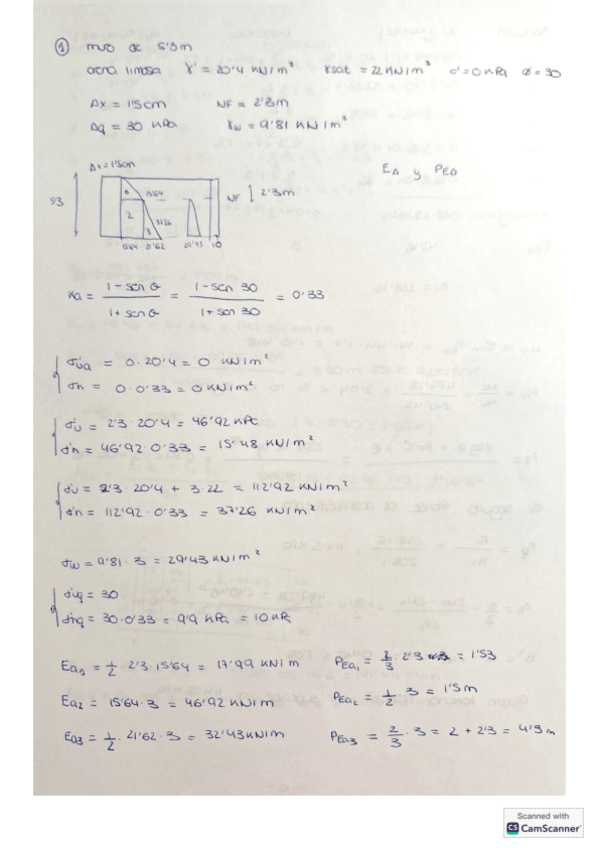 ① muro de 5'3m
arena limosa γ' = 20'4 KN/m³ γsat = 22 KN/m³ c' = 0 KPa Ø = 30
Δx = 1'5cm NF = 2'3m
Δq = 30 KPa γw = 9'81 KN/m³
Δx = 1'5cm
EA y PEA
5'3
1
15'64
NF
2'3m
2
3
15'64
21'62
29'43
10
Ka = 1 - sen θ / 1 + sen θ = 1 - sen 30 / 1 + sen 30 = 0'33
= 0 · 20'4 = 0 KN/m²
= 0 · 0'33 = 0 KN/m²
= 2'3 · 20'4 = 46'92 KPa
= 46'92 · 0'33 = 15'48 KN/m²
= 2'3 · 20'4 + 3 · 22 = 112'92 KN/m²
= 112'92 · 0'33 = 37'26 KN/m²
σw = 9'81 · 3 = 29'43 KN/m²
= 30
= 30 · 0'33 = 9'9 KPa = 10 KPa
Ea₁ = 1/2 · 2'3 · 15'64 = 17'99 KN/m PEa₁ = 2/3 · 2'3 = 1'53
Ea2 = 15'64 · 3 = 46'92 KN/m PEa₂ = 1/2 · 3 = 1'5 m
Ea3 = 1/2 · 21'62 · 3 = 32'43 KN/m PEa3 = 2/3 · 3 = 2 + 2'3 = 4'3 m
Scanned with
CS CamScanner